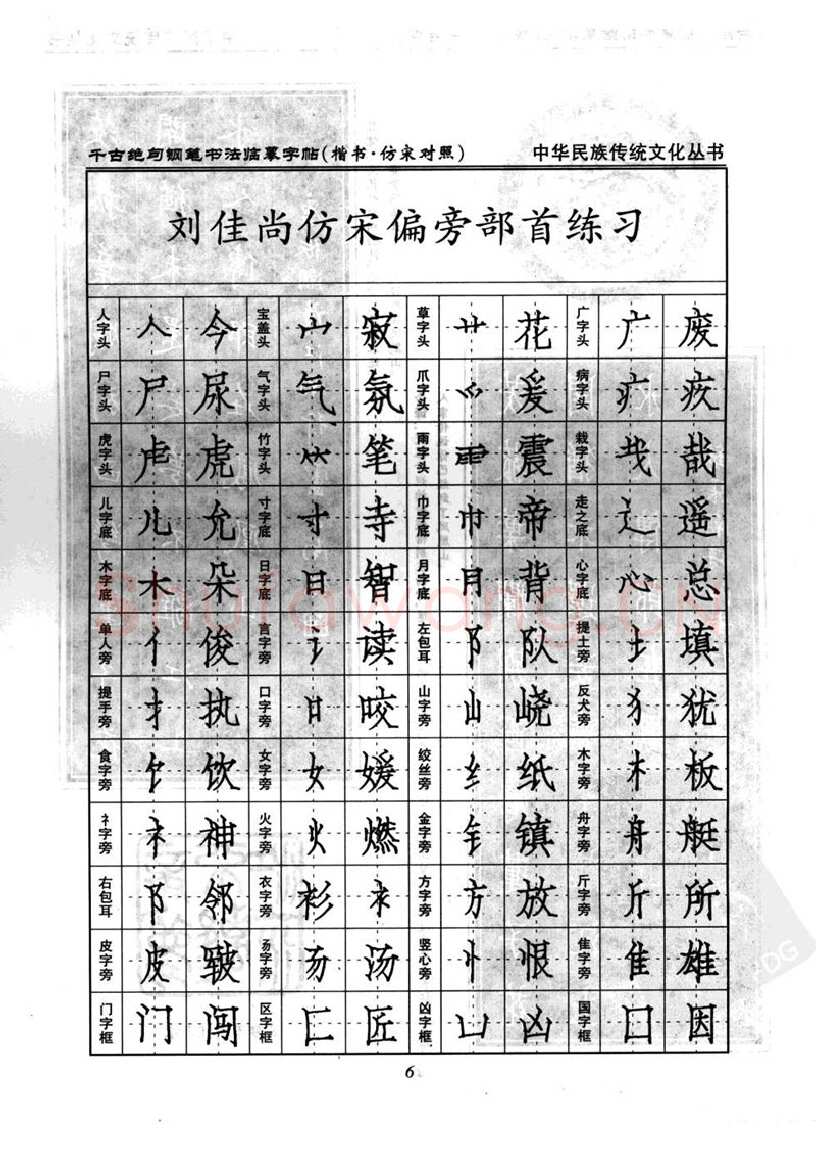 千古绝句钢笔书法临摹字帖(楷书·仿宋对照) 中华民族传统文化丛书
刘佳尚仿宋偏旁部首练习
人字头 人 今 宝盖头 宀 寂 草字头 艹 花 广字头 广 废
尸字头 尸 尿 气字头 气 氛 爪字头 爫 爰 病字头 疒 疚
虎字头 虍 虎 竹字头 ⺮ 笔 雨字头 ⻗ 震 栽字头 𢦏 哉
儿字底 儿 允 寸字底 寸 寺 巾字底 巾 帝 走之底 辶 遥
木字底 木 朵 日字底 日 智 月字底 月 背 心字底 心 总
单人旁 亻 俊 言字旁 讠 读 左包耳 阝 队 提土旁 土 填
提手旁 扌 执 口字旁 口 咬 山字旁 山 峣 反犬旁 犭 犹
食字旁 饣 饮 女字旁 女 媛 绞丝旁 纟 纸 木字旁 木 板
礻字旁 礻 神 火字旁 火 燃 金字旁 钅 镇 舟字旁 舟 艇
右包耳 阝 邻 衣字旁 衫 衤 方字旁 方 放 斤字旁 斤 所
皮字旁 皮 皴 昜字旁 汤 竖心旁 忄 恨 隹字旁 隹 雄
门字框 门 闯 区字框 匚 匠 凶字框 凵 凶 国字框 囗 因
6
shufawang.cn